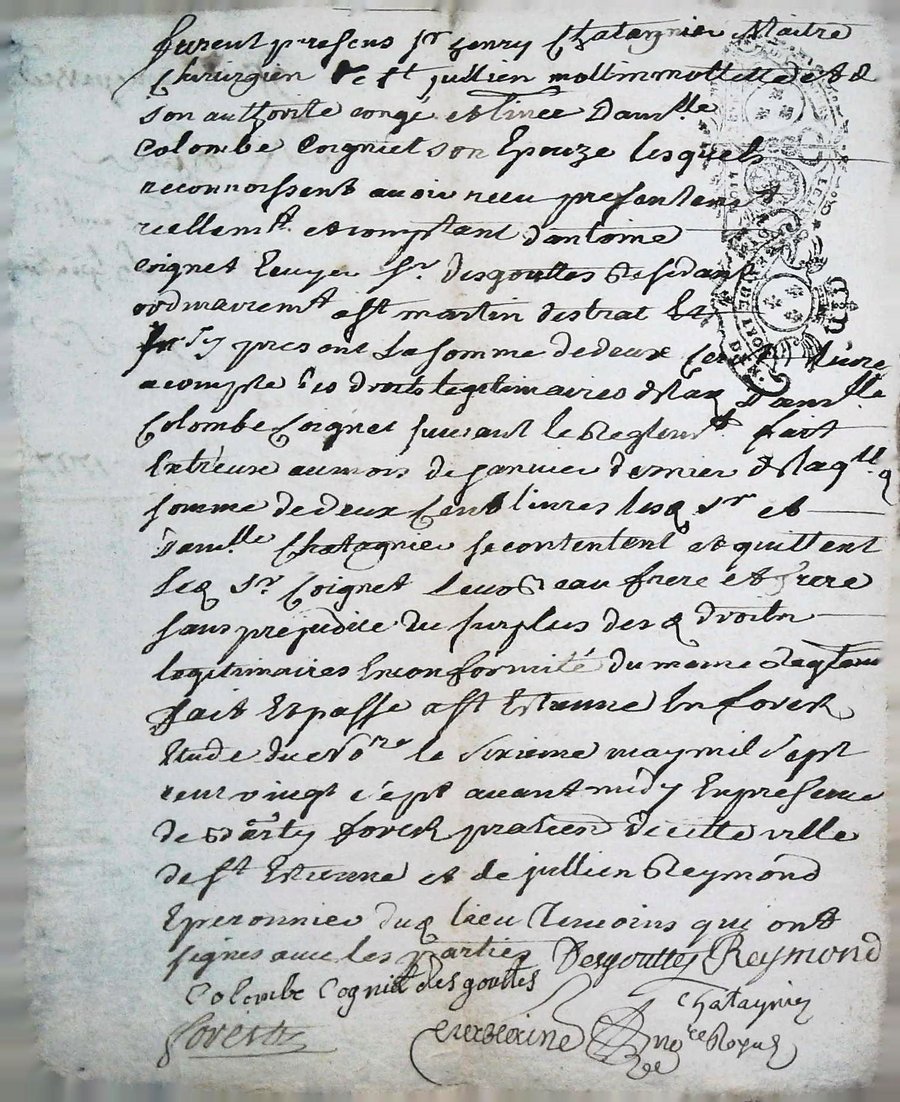 furent presens sr henry Chatagnier Maitre
Chirurgien de st jullien mollinmollette et de
son authorite congé et Licence Damlle
Colombe Coigniet son Epouze lesquels
reconnoissent avoir recu presantemt
reellemt. et comptant dantoine
Coignet Ecuyer Sr. desgouttes residant
ordinairemt a st martin destrat
present La somme de deux Cent Livres
a compte des droits legitimaires de Damlle
Colombe Coignet suivant le Reglemt fait
Entreux au mois de janvier dernier de laqlle
somme de deux Cent livres lesd sr et
Damlle Chatagnier se contentent et quittent
led Sr. Coignet leur Beau frere et frere
sans prejudice du surplus desd droits
legitimaires En conformité du meme Reglemt
fait Et passé a st Estienne En forest
Etude du nore le sixieme may mil sept
cent vingt sept avant midy En presence
de forest praticien de cette ville
de st Estienne et de jullien Reymond
Eperonnier dud lieu temoins qui ont
signes avec les parties Desgouttes Reymond
Colombe Cogniet des gouttes
Chatagnier
forest
nore Royal